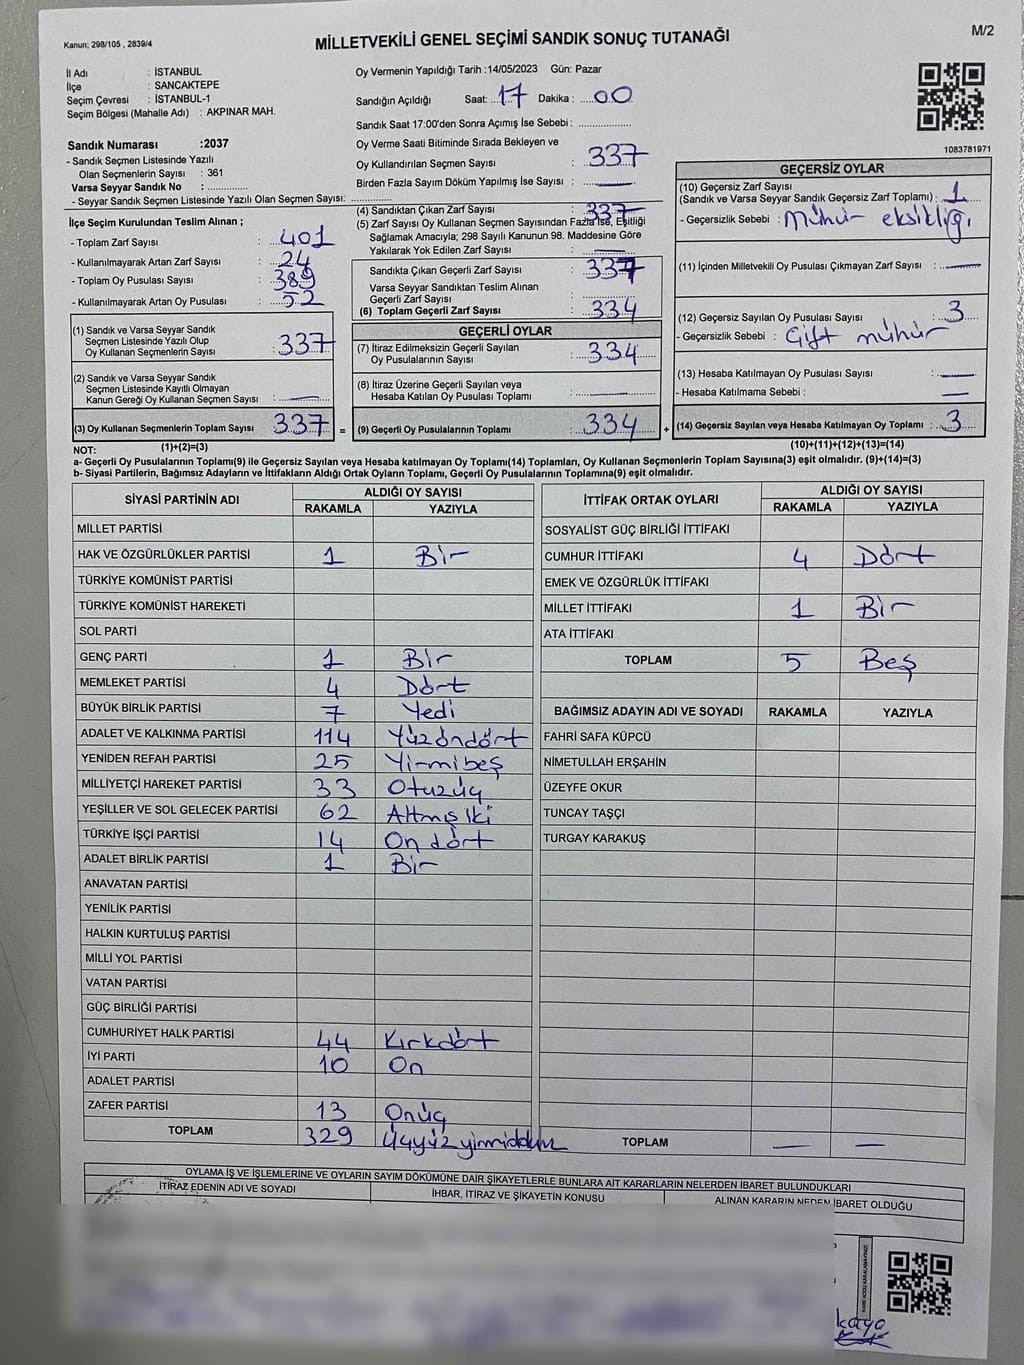 Kanun; 298/105 , 2839/4
MİLLETVEKİLİ GENEL SEÇİMİ SANDIK SONUÇ TUTANAĞI
M/2
İl Adı : İSTANBUL
İlçe : SANCAKTEPE
Seçim Çevresi : İSTANBUL-1
Seçim Bölgesi (Mahalle Adı) : AKPINAR MAH.
Sandık Numarası :2037
- Sandık Seçmen Listesinde Yazılı
Olan Seçmenlerin Sayısı : 361
Varsa Seyyar Sandık No : ..............
- Seyyar Sandık Seçmen Listesinde Yazılı Olan Seçmen Sayısı: ..............
Oy Vermenin Yapıldığı Tarih :14/05/2023 Gün: Pazar
Sandığın Açıldığı Saat: 17 Dakika : 00
Sandık Saat 17:00'den Sonra Açımış İse Sebebi : ..............
Oy Verme Saati Bitiminde Sırada Bekleyen ve
Oy Kullandırılan Seçmen Sayısı : 337
Birden Fazla Sayım Döküm Yapılmış İse Sayısı : —
1083781971
İlçe Seçim Kurulundan Teslim Alınan ;
- Toplam Zarf Sayısı : 401
- Kullanılmayarak Artan Zarf Sayısı : 24
- Toplam Oy Pusulası Sayısı : 389
- Kullanılmayarak Artan Oy Pusulası : 52
(1) Sandık ve Varsa Seyyar Sandık
Seçmen Listesinde Yazılı Olup
Oy Kullanan Seçmenlerin Sayısı : 337
(2) Sandık ve Varsa Seyyar Sandık
Seçmen Listesinde Kayıtlı Olmayan
Kanun Gereği Oy Kullanan Seçmen Sayısı : —
(3) Oy Kullanan Seçmenlerin Toplam Sayısı 337 =
(4) Sandıktan Çıkan Zarf Sayısı : 337
(5) Zarf Sayısı Oy Kullanan Seçmen Sayısından Fazla İse, Eşitliği
Sağlamak Amacıyla; 298 Sayılı Kanunun 98. Maddesine Göre
Yakılarak Yok Edilen Zarf Sayısı : —
Sandıkta Çıkan Geçerli Zarf Sayısı : 337
Varsa Seyyar Sandıktan Teslim Alınan
Geçerli Zarf Sayısı : ..............
(6) Toplam Geçerli Zarf Sayısı : 334
GEÇERLİ OYLAR
(7) İtiraz Edilmeksizin Geçerli Sayılan
Oy Pusulalarının Sayısı : 334
(8) İtiraz Üzerine Geçerli Sayılan veya
Hesaba Katılan Oy Pusulası Toplamı : —
(9) Geçerli Oy Pusulalarının Toplamı : 334 +
GEÇERSİZ OYLAR
(10) Geçersiz Zarf Sayısı
(Sandık ve Varsa Seyyar Sandık Geçersiz Zarf Toplamı) : 1
- Geçersizlik Sebebi : Mühür eksikliği
(11) İçinden Milletvekili Oy Pusulası Çıkmayan Zarf Sayısı : —
(12) Geçersiz Sayılan Oy Pusulası Sayısı : 3
- Geçersizlik Sebebi : Çift mühür
(13) Hesaba Katılmayan Oy Pusulası Sayısı : —
- Hesaba Katılmama Sebebi : —
(14) Geçersiz Sayılan veya Hesaba Katılmayan Oy Toplamı : 3
NOT: (1)+(2)=(3)
(10)+(11)+(12)+(13)=(14)
a- Geçerli Oy Pusulalarının Toplamı(9) ile Geçersiz Sayılan veya Hesaba katılmayan Oy Toplamı(14) Toplamları, Oy Kullanan Seçmenlerin Toplam Sayısına(3) eşit olmalıdır. (9)+(14)=(3)
b- Siyasi Partilerin, Bağımsız Adayların ve İttifakların Aldığı Ortak Oyların Toplamı, Geçerli Oy Pusulalarının Toplamına(9) eşit olmalıdır.
SİYASİ PARTİNİN ADI ALDIĞI OY SAYISI
RAKAMLA YAZIYLA
MİLLET PARTİSİ
HAK VE ÖZGÜRLÜKLER PARTİSİ 1 Bir
TÜRKİYE KOMÜNİST PARTİSİ
TÜRKİYE KOMÜNİST HAREKETİ
SOL PARTİ
GENÇ PARTİ 1 Bir
MEMLEKET PARTİSİ 4 Dört
BÜYÜK BİRLİK PARTİSİ 7 Yedi
ADALET VE KALKINMA PARTİSİ 114 Yüzöndört
YENİDEN REFAH PARTİSİ 25 Yirmibeş
MİLLİYETÇİ HAREKET PARTİSİ 33 Otuzüç
YEŞİLLER VE SOL GELECEK PARTİSİ 62 Altmış iki
TÜRKİYE İŞÇİ PARTİSİ 14 On dört
ADALET BİRLİK PARTİSİ 1 Bir
ANAVATAN PARTİSİ
YENİLİK PARTİSİ
HALKIN KURTULUŞ PARTİSİ
MİLLİ YOL PARTİSİ
VATAN PARTİSİ
GÜÇ BİRLİĞİ PARTİSİ
CUMHURİYET HALK PARTİSİ 44 Kırkdört
İYİ PARTİ 10 On
ADALET PARTİSİ
ZAFER PARTİSİ 13 Onüç
TOPLAM 329
İTTİFAK ORTAK OYLARI ALDIĞI OY SAYISI
RAKAMLA YAZIYLA
SOSYALİST GÜÇ BİRLİĞİ İTTİFAKI
CUMHUR İTTİFAKI 4 Dört
EMEK VE ÖZGÜRLÜK İTTİFAKI
MİLLET İTTİFAKI 1 Bir
ATA İTTİFAKI
TOPLAM 5 Beş
BAĞIMSIZ ADAYIN ADI VE SOYADI RAKAMLA YAZIYLA
FAHRİ SAFA KÜPCÜ
NİMETULLAH ERŞAHİN
ÜZEYFE OKUR
TUNCAY TAŞÇI
TURGAY KARAKUŞ
TOPLAM — —
OYLAMA İŞ VE İŞLEMLERİNE VE OYLARIN SAYIM DÖKÜMÜNE DAİR ŞİKAYETLERLE BUNLARA AİT KARARLARIN NELERDEN İBARET BULUNDUKLARI
İTİRAZ EDENİN ADI VE SOYADI İHBAR, İTİRAZ VE ŞİKAYETİN KONUSU ALINAN KARARIN NEDEN İBARET OLDUĞU
kaya